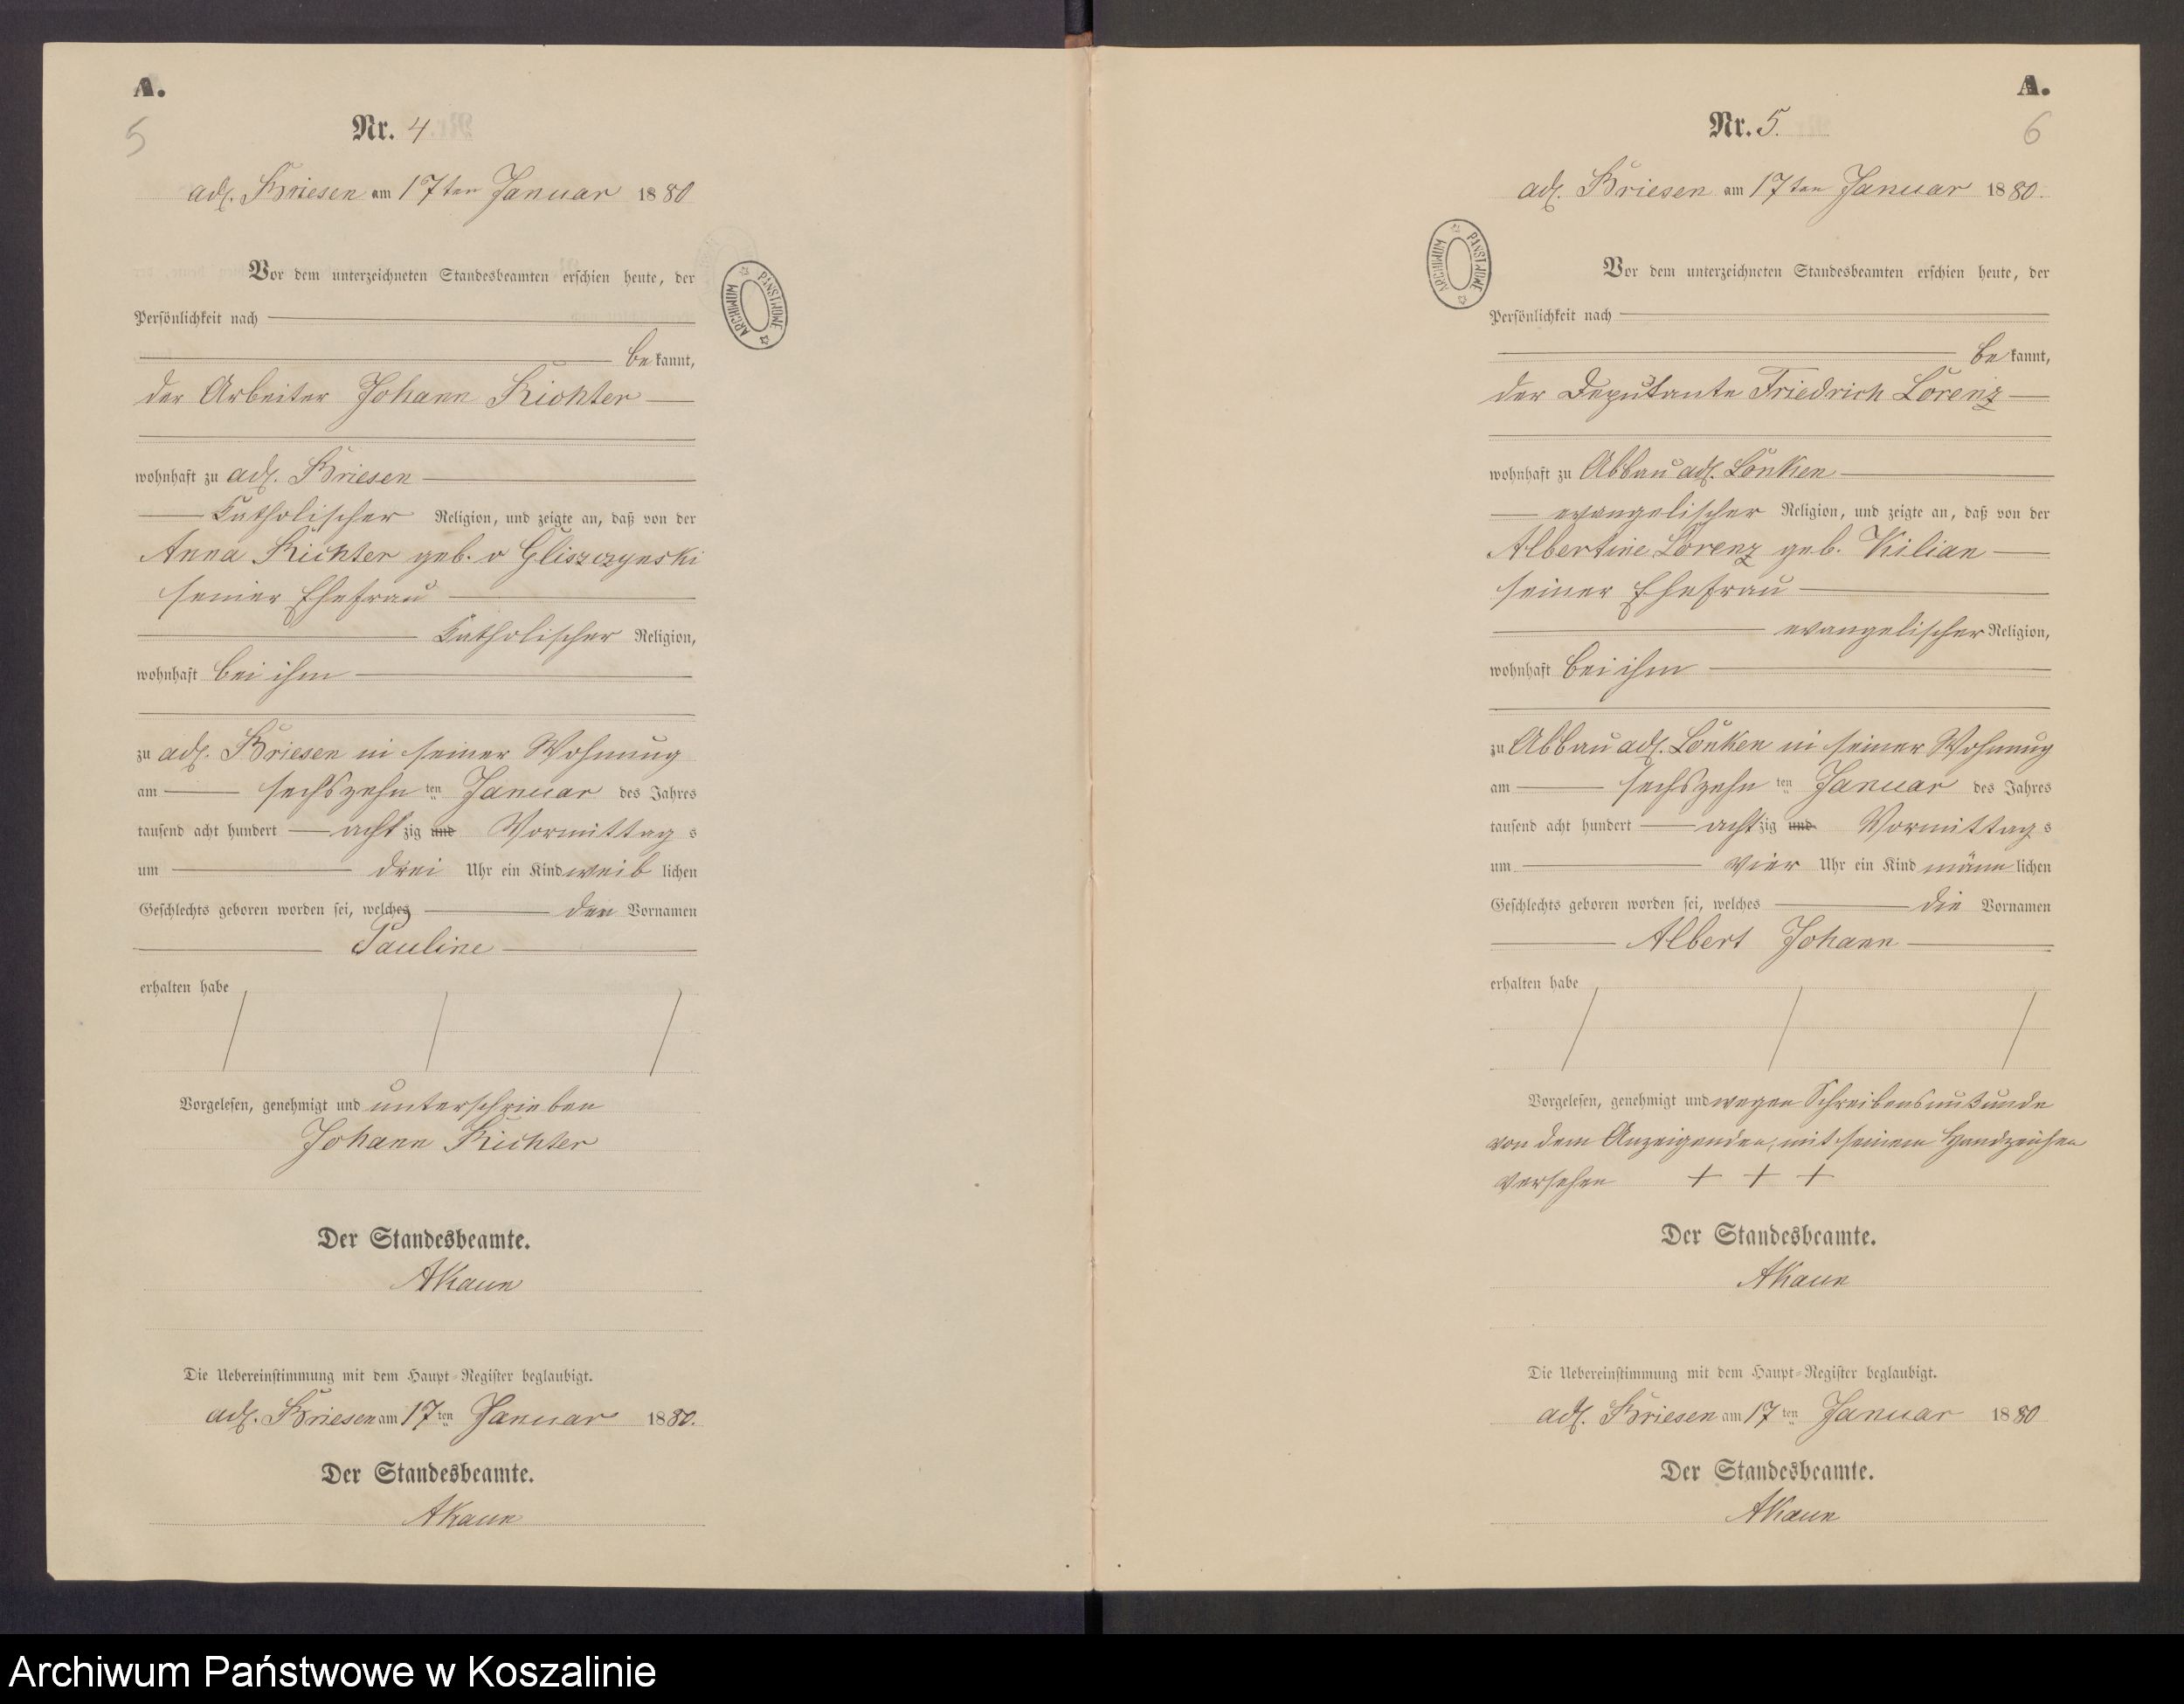 A.
5
Nr. 4
adl. Briesen am 17ten Januar 1880
Vor dem unterzeichneten Standesbeamten erschien heute, der
Persönlichkeit nach
bekannt,
der Arbeiter Johann Richter
wohnhaft zu adl. Briesen
katholischer Religion, und zeigte an, daß von der
Anna Richter geb. v Gliszczynski
seiner Ehefrau
katholischer Religion,
wohnhaft bei ihm
zu adl. Briesen in seiner Wohnung
am sechszehn ten Januar des Jahres
tausend acht hundert achtzig und Vormittags
um drei Uhr ein Kind weiblichen
Geschlechts geboren worden sei, welches den Vornamen
Pauline
erhalten habe
Vorgelesen, genehmigt und unterschrieben
Johann Richter
Der Standesbeamte.
AKaun
Die Uebereinstimmung mit dem Haupt-Register beglaubigt.
adl. Briesen am 17ten Januar 1880.
Der Standesbeamte.
AKaun
ARCHIWUM PAŃSTWOWE
A.
6
Nr. 5.
adl. Briesen am 17ten Januar 1880.
Vor dem unterzeichneten Standesbeamten erschien heute, der
Persönlichkeit nach
bekannt,
der Deputante Friedrich Lorenz
wohnhaft zu Abbau adl. Lonken
evangelischer Religion, und zeigte an, daß von der
Albertine Lorenz geb. Kilian
seiner Ehefrau
evangelischer Religion,
wohnhaft bei ihm
zu Abbau adl. Lonken in seiner Wohnung
am sechszehn ten Januar des Jahres
tausend acht hundert achtzig und Vormittags
um vier Uhr ein Kind männlichen
Geschlechts geboren worden sei, welches die Vornamen
Albert Johann
erhalten habe
Vorgelesen, genehmigt und wegen Schreibensunkunde
von dem Anzeigenden, mit seinem Handzeichen
versehen + + +
Der Standesbeamte.
AKaun
Die Uebereinstimmung mit dem Haupt-Register beglaubigt.
adl. Briesen am 17ten Januar 1880
Der Standesbeamte.
AKaun
ARCHIWUM PAŃSTWOWE
Archiwum Państwowe w Koszalinie